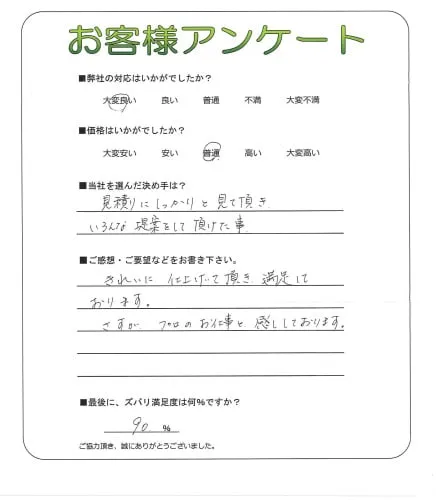 お客様アンケート
■弊社の対応はいかがでしたか?
大変良い 良い 普通 不満 大変不満
■価格はいかがでしたか?
大変安い 安い 普通 高い 大変高い
■当社を選んだ決め手は?
見積りにしっかりと見て頂き
いろんな提案をして頂けた事
■ご感想・ご要望などをお書き下さい。
きれいに仕上げて頂き満足して
おります。
さすが、プロのお仕事と、感しております。
■最後に、ズバリ満足度は何%ですか?
90 %
ご協力頂き、誠にありがとうございました。